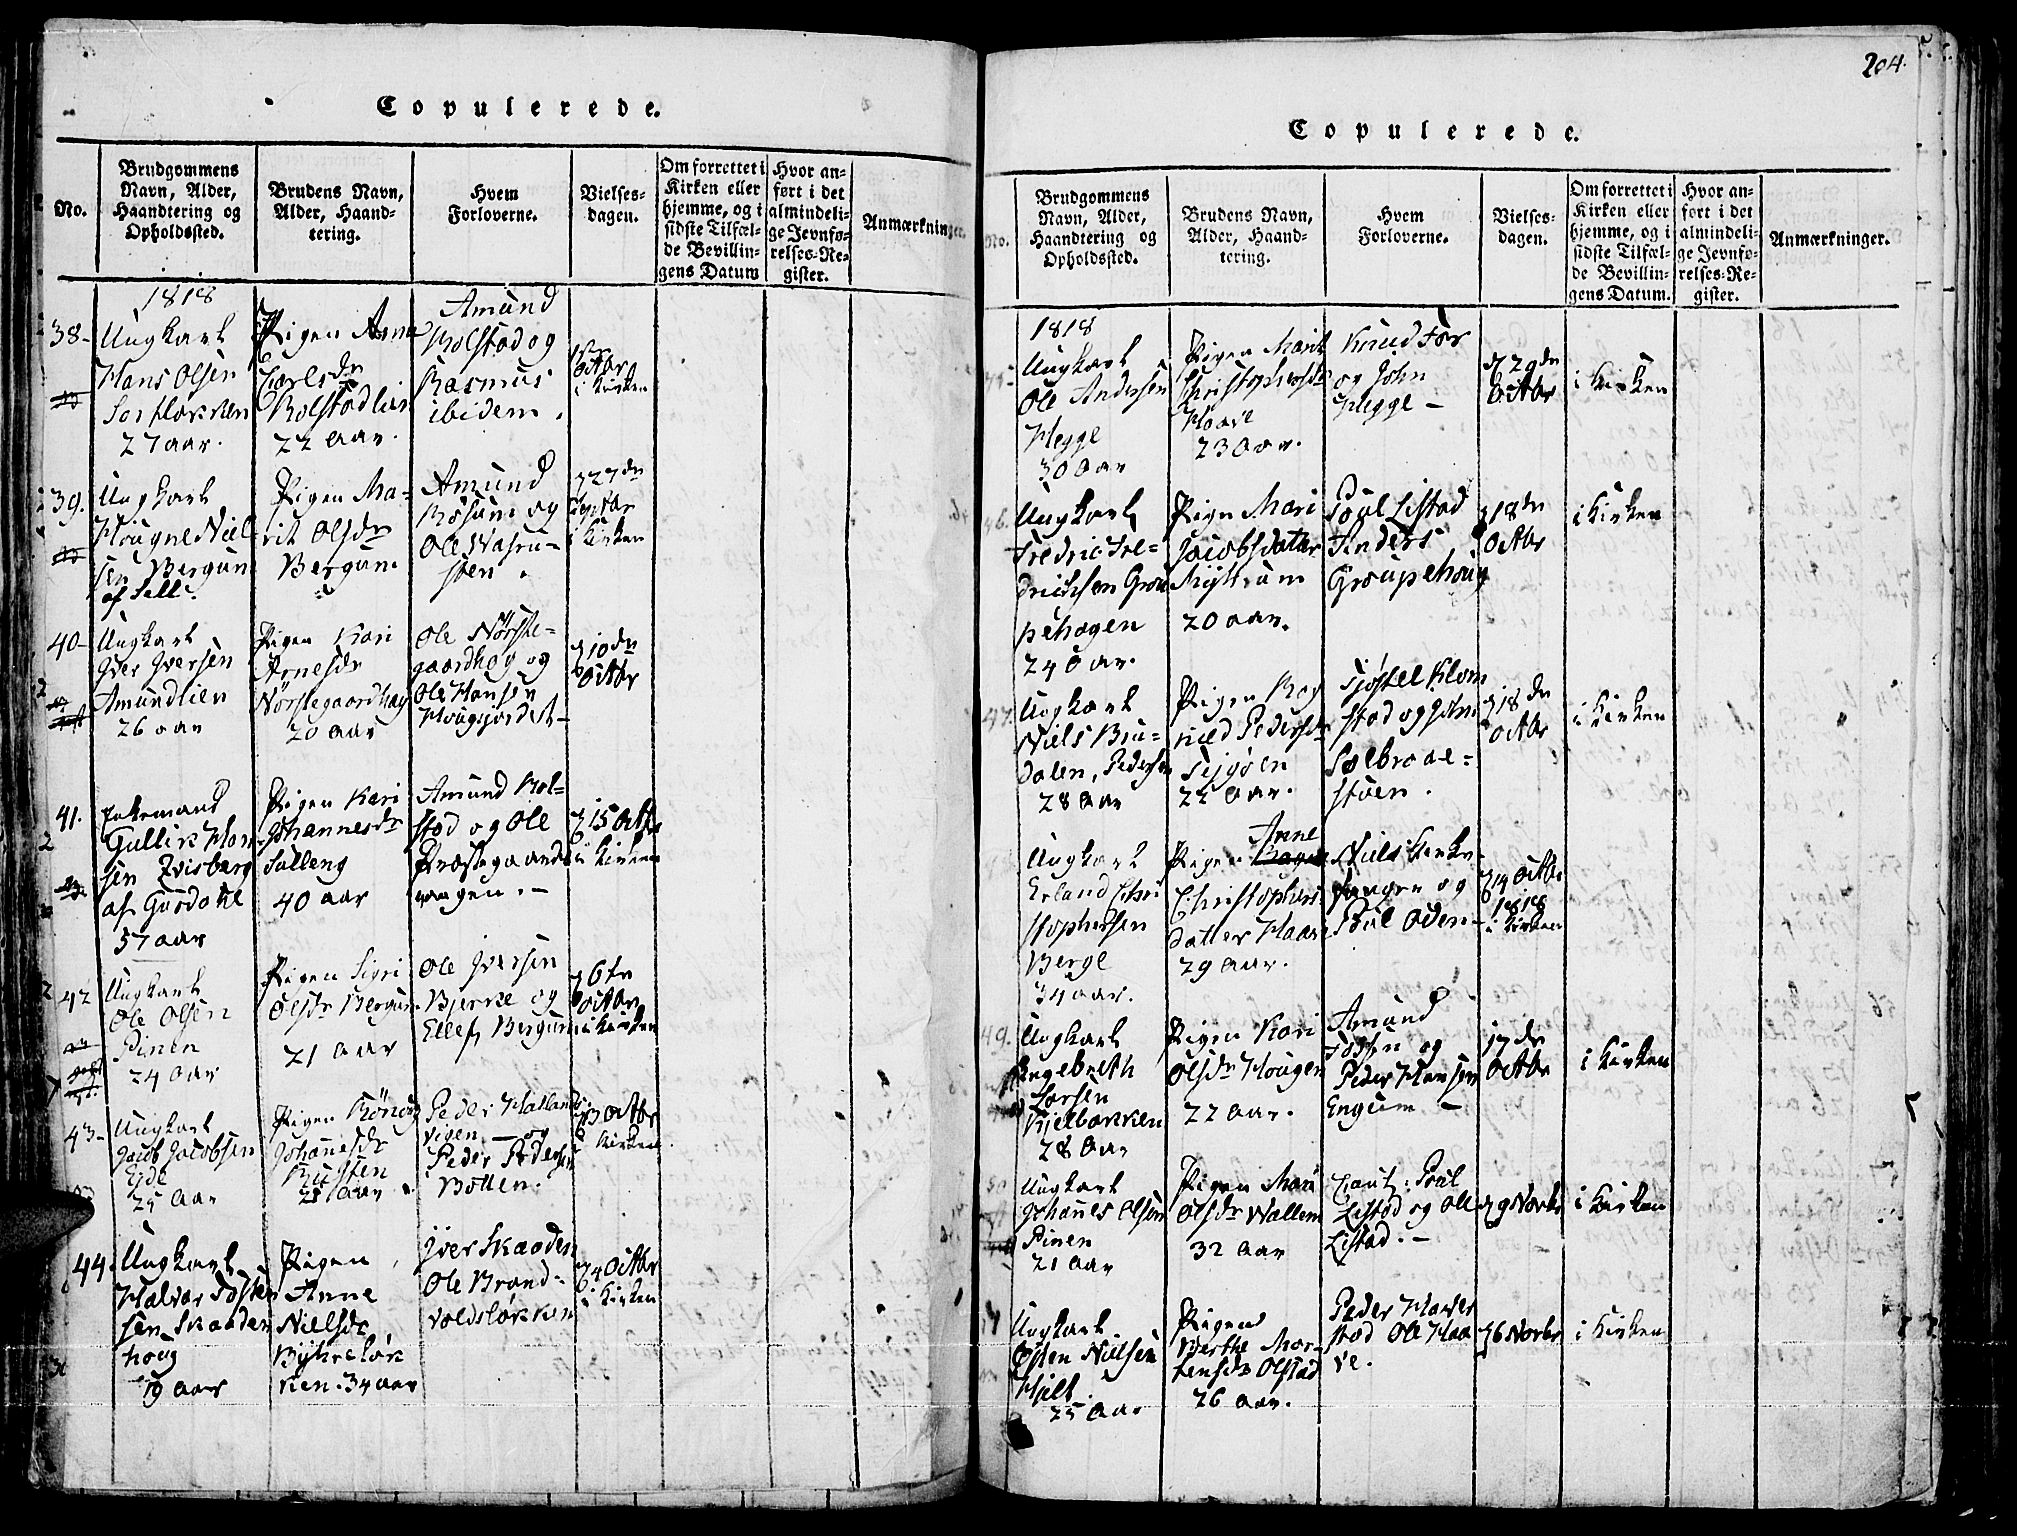 204.
Copulerede.
No.
Brudgommens
Navn, Alder,
Haandtering og
Opholdssted.
Brudens Navn,
Alder, Haand-
tering.
Hvem
Forloverne.
Vielses-
dagen.
Om forrettet i
Kirken eller
hjemme, og i
sidste Tilfæl-
de Bevillin-
gens Datum
Hvor an-
ført i det
almindeli-
ge Jevnfø-
relses-Re-
gister.
Anmærkninger.
1818
38-
Ungkarl
Hans Olsen
27 aar.
Pigen Anna
22 aar.
Amund
Kolstad og
Rasmus
ibidem.
Octbr
i Kirken
39.
Ungkarl
Niel-
sen Bergum
af Sell.
Pigen Ma-
rit Olsdr
Bergum
Amund
og
Ole
sten.
d 27de
i Kirken
40-
Ungkarl
Iver Iversen
Amundlien
26 aar
Pigen Kari
Arnesdr
Nørstegaardhag
20 aar
Ole Nørste-
gaardhag og
Ole Hansen
Hougsjordet-
d 10de
Octbr
41.
Enkemand
Gullik Han-
sen
af
57 aar
Pigen Kari
Johannesdr
Salleng
40 aar
Amund Kol-
stad og Ole
Præstegaards-
vangen.-
d 15 Octbr
i Kirken
42
Ungkarl
Ole Olsen
Pinen
24 aar
Pigen Sigri
Olsdr Bergum
21 aar
Ole Iversen
Bjerke og
Ellef Bergum
d 6te
Octbr
i Kirken
43-
Ungkarl
Jacob Jacobsen
Eide
25 aar
Pigen Rønnog
Johannesdr
25 aar.
Peder
vigen - og
Peder Pedersen
Botten.
d 3 Octbr
i Kirken
44.
Ungkarl
Halvar
sen Skaaden
houg
19 aar
Pigen
Anne
Nielsdr
ken. 34 aar
Iver Skaaden
Ole Brand-
voldsløkken
d 4 Octbr
i Kirken
Copulerede.
No.
Brudgommens
Navn, Alder,
Haandtering og
Opholdssted.
Brudens Navn,
Alder, Haand-
tering.
Hvem
Forloverne.
Vielses-
dagen.
Om forrettet i
Kirken eller
hjemme, og i
sidste Tilfæl-
de Bevillin-
gens Datum.
Hvor an-
ført i det
almindeli-
ge Jevnfø-
relses-Re-
gister.
Anmærkninger.
1818
45-
Ungkarl
Ole Andersen
Hegge
30 aar
Pigen Marit
Christophersdr
Haave
23 aar.
Knud For
og John
Hegge -
d 29de
Octbr
i Kirken
46.
Ungkarl
Fredric Fre-
drichsen Grou
pehagen
24 aar.
Pigen Mari
Jacobsdatter
Myttrum
20 aar.
Poul Listad
Anders
Groupehoug
d 18de
Octbr
i Kirken
47.
Ungkarl
Niels Bru-
dalen, Pedersen
28 aar
Pigen Rag
nild Pedersdr
22 aar.
Klom
stad og John
støen.
d 18de
Octbr
i Kirken
Ungkarl
Erland Chri
stophersen
Berge
34 aar.
Pigen Anne
Christophers-
datter Haave
29 aar.
Niels Kirke-
og
Poul Oden-
d 14 Octbr
1818
i Kirken
49.
Ungkarl
Engebreth
Larsen
Kjelbakken
28 aar
Pigen Kari
Olsdr Hougen
22 aar.
Amund
og
Peder Hansen
Engum -
17de
Octbr
i Kirken
50
Ungkarl
Johannes Olsen
Pinen
21 aar
Pigen Mari
Olsdr Wallem
32 aar
Poul
Listad og Ole
Listad. -
d 9 Novbr
i Kirken
Ungkarl
Østen Nielsen
25 aar.
Pigen
Berthe Mor-
tensdr Olstad
26 aar.
Peder
stad Ole Haa
ve.
d 6 Novbr
i Kirken